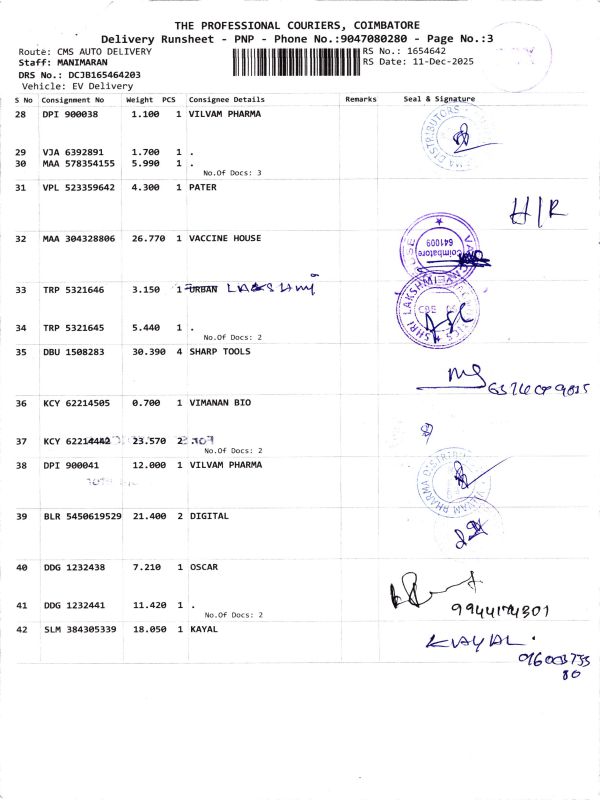 THE PROFESSIONAL COURIERS, COIMBATORE
Delivery Runsheet - PNP - Phone No.:9047080280 - Page No.:3
Route: CMS AUTO DELIVERY
RS No.: 1654642
Staff: MANIMARAN
RS Date: 11-Dec-2025
DRS No.: DCJB165464203
Vehicle: EV Delivery
S No Consignment No Weight PCS Consignee Details Remarks Seal & Signature
28 DPI 900038 1.100 1 VILVAM PHARMA
29 VJA 6392891 1.700 1 .
30 MAA 578354155 5.990 1 .
No.Of Docs: 3
31 VPL 523359642 4.300 1 PATER
H/R
32 MAA 304328806 26.770 1 VACCINE HOUSE
Coimbatore
641009
33 TRP 5321646 3.150 1 URBAN LAKSHMI
SHRI LAKSHMI
34 TRP 5321645 5.440 1 .
No.Of Docs: 2
35 DBU 1508283 30.390 4 SHARP TOOLS
36 KCY 62214505 0.700 1 VIMANAN BIO
37 KCY 62214442 23.570 2
No.Of Docs: 2
38 DPI 900041 12.000 1 VILVAM PHARMA
PHARMA DISTRIBUTORS
39 BLR 5450619529 21.400 2 DIGITAL
40 DDG 1232438 7.210 1 OSCAR
9944174301
41 DDG 1232441 11.420 1 .
No.Of Docs: 2
42 SLM 384305339 18.050 1 KAYAL
KAYAL.